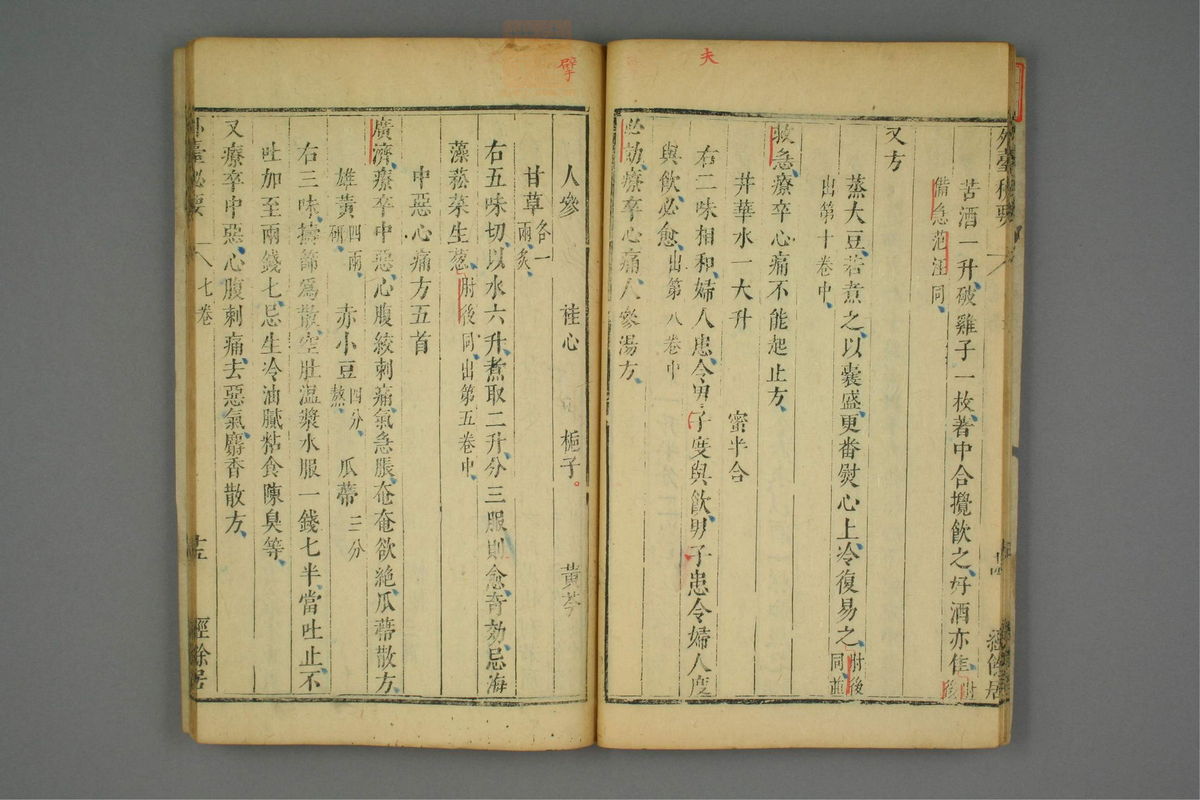 夫
外臺秘要
苦酒一升破雞子一枚著中合攪飲之好酒亦佳肘後
備急范汪同
又方
蒸大豆若煮之以囊盛更番熨心上冷復易之肘後同並
出第十卷中
救急療卒心痛不能起止方
井華水一大升 蜜半合
右二味相和婦人患令男子度與飲男子患令婦人度
與飲必愈出第八卷中
必効療卒心痛人參湯方
擘
人參 桂心 梔子 黃芩
甘草各一兩炙
右五味切以水六升煮取二升分三服則愈奇効忌海
藻菘菜生葱肘後同出第五卷中
中惡心痛方五首
廣濟療卒中惡心腹絞刺痛氣急脹奄奄欲絶瓜蔕散方
雄黃四兩研 赤小豆四分熬 瓜蔕三分
右三味擣篩為散空肚溫漿水服一錢七半當吐止不
吐加至兩錢七忌生冷油膩粘食陳臭等
又療卒中惡心腹刺痛去惡氣麝香散方
外臺秘要 七卷 經餘居